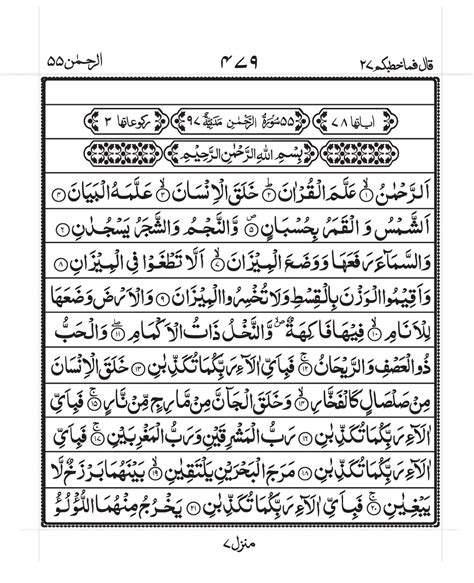 قال فما خطبکم ۲۷ ۴۷۹ الرحمٰن ۵۵
اٰیاتها ۷۸ ۵۵ سُوْرَةُ الرَّحْمٰنِ مَدَنِیَّةٌ ۹۷ رکوعاتها ۳
بِسْمِ اللّٰهِ الرَّحْمٰنِ الرَّحِیْمِ
اَلرَّحْمٰنُ ۙ﴿۱﴾ عَلَّمَ الْقُرْاٰنَ ؕ﴿۲﴾ خَلَقَ الْاِنْسَانَ ۙ﴿۳﴾ عَلَّمَهُ الْبَیَانَ ﴿۴﴾
اَلشَّمْسُ وَ الْقَمَرُ بِحُسْبَانٍ ۪﴿۵﴾ وَّ النَّجْمُ وَ الشَّجَرُ یَسْجُدٰنِ ﴿۶﴾
وَ السَّمَآءَ رَفَعَهَا وَ وَضَعَ الْمِیْزَانَ ۙ﴿۷﴾ اَلَّا تَطْغَوْا فِی الْمِیْزَانِ ﴿۸﴾
وَ اَقِیْمُوا الْوَزْنَ بِالْقِسْطِ وَ لَا تُخْسِرُوا الْمِیْزَانَ ﴿۹﴾ وَ الْاَرْضَ وَضَعَهَا
لِلْاَنَامِ ۙ﴿۱۰﴾ فِیْهَا فَاكِهَةٌ ۪ۙ وَّ النَّخْلُ ذَاتُ الْاَكْمَامِ ۖ﴿۱۱﴾ وَ الْحَبُّ
ذُو الْعَصْفِ وَ الرَّیْحَانُ ۚ﴿۱۲﴾ فَبِاَیِّ اٰلَآءِ رَبِّكُمَا تُكَذِّبٰنِ ﴿۱۳﴾ خَلَقَ الْاِنْسَانَ
مِنْ صَلْصَالٍ كَالْفَخَّارِ ۙ﴿۱۴﴾ وَ خَلَقَ الْجَآنَّ مِنْ مَّارِجٍ مِّنْ نَّارٍ ۚ﴿۱۵﴾ فَبِاَیِّ
اٰلَآءِ رَبِّكُمَا تُكَذِّبٰنِ ﴿۱۶﴾ رَبُّ الْمَشْرِقَیْنِ وَ رَبُّ الْمَغْرِبَیْنِ ۚ﴿۱۷﴾ فَبِاَیِّ
اٰلَآءِ رَبِّكُمَا تُكَذِّبٰنِ ﴿۱۸﴾ مَرَجَ الْبَحْرَیْنِ یَلْتَقِیٰنِ ۙ﴿۱۹﴾ بَیْنَهُمَا بَرْزَخٌ لَّا
یَبْغِیٰنِ ۚ﴿۲۰﴾ فَبِاَیِّ اٰلَآءِ رَبِّكُمَا تُكَذِّبٰنِ ﴿۲۱﴾ یَخْرُجُ مِنْهُمَا اللُّؤْلُؤُ
منزل ۷